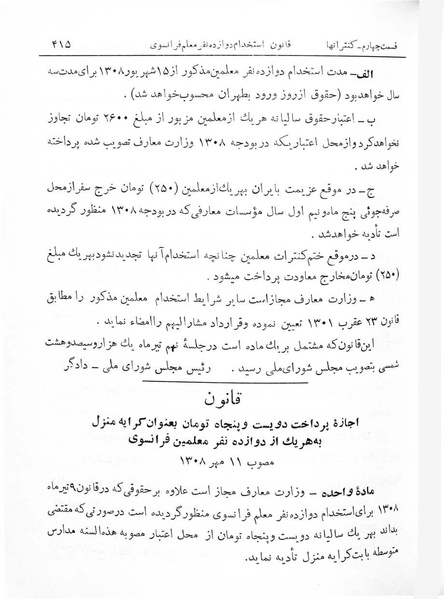 قسمت چهارم - کنتراتها    قانون استخدام دوازده نفر معلم فرانسوی    ۴۱۵
الف - مدت استخدام دوازده نفر معلمین مذکور از ۱۵ شهریور ۱۳۰۸ برای مدت سه
سال خواهد بود (حقوق از روز ورود بطهران محسوب خواهد شد)
ب - اعتبار حقوق سالیانه هر یک از معلمین مزبور از مبلغ ۲۶۰۰ تومان تجاوز
نخواهد کرد و از محل اعتباریکه در بودجه ۱۳۰۸ وزارت معارف تصویب شده پرداخته
خواهد شد.
ج - در موقع عزیمت بایران بهر یک از معلمین (۲۵۰) تومان خرج سفر از محل
صرفه جوئی پنج ماه و نیم اول سال مؤسسات معارفی که در بودجه ۱۳۰۸ منظور گردیده
است تأدیه خواهد شد.
د - در موقع ختم کنترات معلمین چنانچه استخدام آنها تجدید نشود بهر یک مبلغ
(۲۵۰) تومان مخارج معاودت پرداخت میشود.
ه - وزارت معارف مجاز است سایر شرایط استخدام معلمین مذکور را مطابق
قانون ۲۳ عقرب ۱۳۰۱ تعیین نموده و قرارداد مشارالیهم را امضاء نماید.
این قانون که مشتمل بر یک ماده است در جلسهٔ نهم تیر ماه یک هزار و سیصد و هشت
شمسی بتصویب مجلس شورای ملی رسید. رئیس مجلس شورای ملی - دادگر
قانون
اجازهٔ پرداخت دویست و پنجاه تومان بعنوان کرایه منزل
به هر یک از دوازده نفر معلمین فرانسوی
مصوب ۱۱ مهر ۱۳۰۸
مادهٔ واحده - وزارت معارف مجاز است علاوه بر حقوقی که در قانون ۹ تیر ماه
۱۳۰۸ برای استخدام دوازده نفر معلم فرانسوی منظور گردیده است در صورتی که مقتضی
بداند بهر یک سالیانه دویست و پنجاه تومان از محل اعتبار مصوبه هذه السنه مدارس
متوسطه بابت کرایه منزل تأدیه نماید.